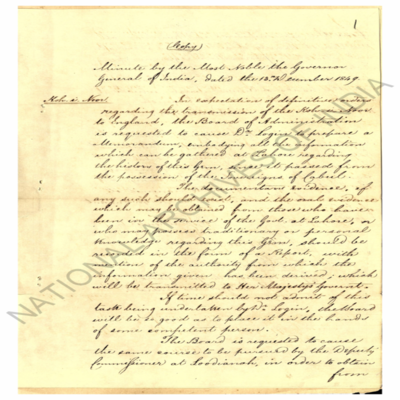 1
(Copy)
Minute by the Most Noble the Governor
General of India, dated the 13th December 1849.
Koh i Noor
In expectation of definitive orders
regarding the transmission of the Koh i Noor
to England, the Board of Administration
is requested to cause Dr. Login to prepare a
Memorandum, embodying all the information
which can be gathered at Lahore regarding
the history of this Gem, since it passed from
the possession of the Sovereigns of Cabul.
The documentary evidence, if
any such should exist, and the oral evidence
which may be obtained from those who have
been in the service of the Govt. at Lahore, or
who may possess traditionary or personal
knowledge regarding this Gem, should be
recorded in the form of a Report, with
mention of the authority from which the
information given has been derived; which
will be transmitted to Her Majesty's Governt.
If time should not admit of this
task being undertaken by Dr. Login, the Board
will be so good as to place it in the hands
of some competent person.
The Board is requested to cause
the same course to be pursued by the Deputy
Commissioner at Loodianah, in order to obtain
from
NATIONAL ARCHIVES OF INDIA